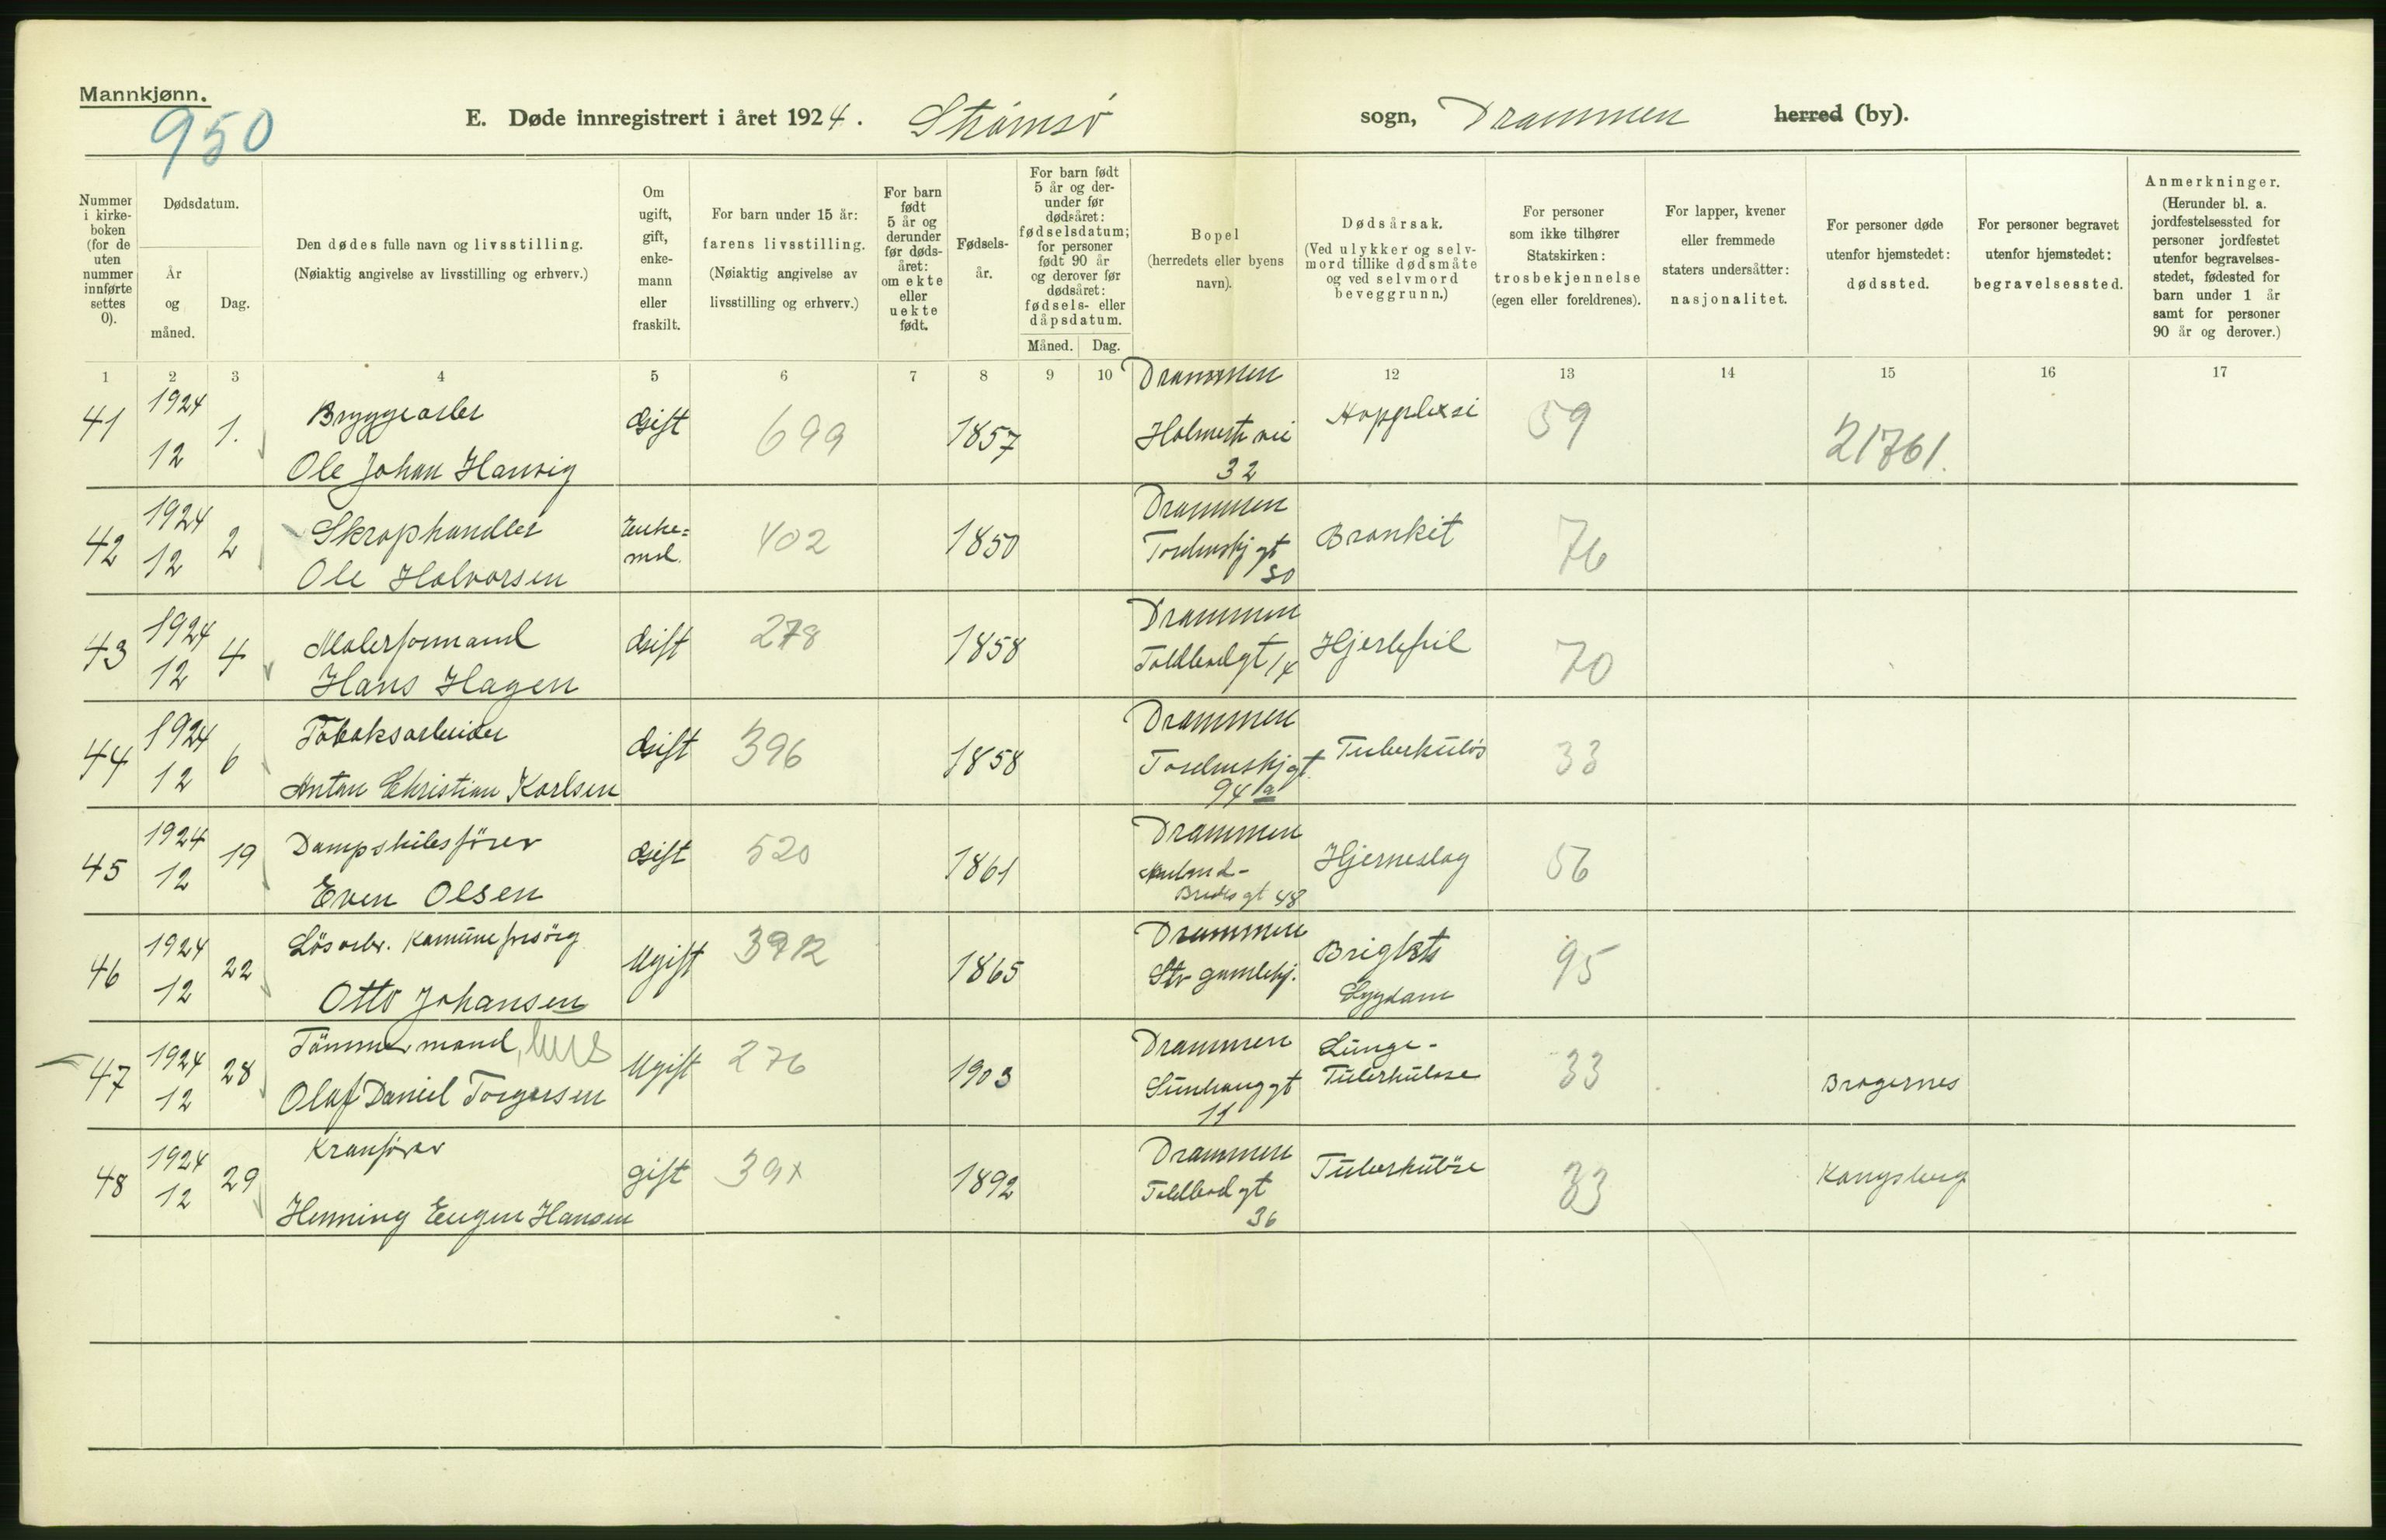 Mannkjønn.
950
E. Døde innregistrert i året 1924. Strømsø sogn, Drammen herred (by).
Nummer i kirke- boken (for de uten nummer innførte settes 0).
Dødsdatum.
År og måned.
Dag.
Den dødes fulle navn og livsstilling. (Nøiaktig angivelse av livsstilling og erhverv.)
Om ugift, gift, enke- mann eller fraskilt.
For barn under 15 år: farens livsstilling. (Nøiaktig angivelse av livsstilling og erhverv.)
For barn født 5 år og derunder før døds- året: om ekte eller uekte født.
Fødsels- år.
For barn født 5 år og der- under før dødsåret: fødselsdatum; for personer født 90 år og derover før dødsåret: fødsels- eller dåpsdatum.
Måned. Dag.
Bopel (herredets eller byens navn).
Dødsårsak. (Ved ulykker og selv- mord tillike dødsmåte og ved selvmord beveggrunn.)
For personer som ikke tilhører Statskirken: trosbekjennelse (egen eller foreldrenes).
For lapper, kvener eller fremmede staters undersåtter: nasjonalitet.
For personer døde utenfor hjemstedet: dødssted.
For personer begravet utenfor hjemstedet: begravelsessted.
Anmerkninger. (Herunder bl. a. jordfestelsessted for personer jordfestet utenfor begravelses- stedet, fødested for barn under 1 år samt for personer 90 år og derover.)
1 2 3 4 5 6 7 8 9 10 12 13 14 15 16 17
41 1924 12 1. Bryggearbr Ole Johan Hanvig Gift 699 1857 Drammen Holmestr vei 32 Apopleksi 59 21761.
42 1924 12 2 Skraphandler Ole Halvorsen Enke= md. 402 1850 Drammen gt 50 Bronkit 76
43 1924 12 4 Malerformand Hans Hagen Gift 278 1858 Drammen Toldbodgt 14 Hjertefeil 70
44 1924 12 6 Tobaksarbeider Anton Christian Karlsen Gift 396 1858 Drammen gt. 94 a Tuberkuløs 33
45 1924 12 19 Dampskibsfører Even Olsen Gift 520 1861 Drammen gt 48 Hjerneslag 56
46 1924 12 22 Løsarbr. Komuneforsørg Otto Johansen Ugift 1865 Drammen Str gamlehj. Brights Sygdom 95
47 1924 12 28 Tømmermand, Olaf Daniel Torgersen Ugift 276 1903 Drammen Sundhauggt 11 Lunge- Tuberkulose 33 Bragernes
48 1924 12 29 Kranfører Henning Eugen Hansen gift 39x 1892 Drammen Toldbodgt 36 Tuberkuløse 33 Kongsberg